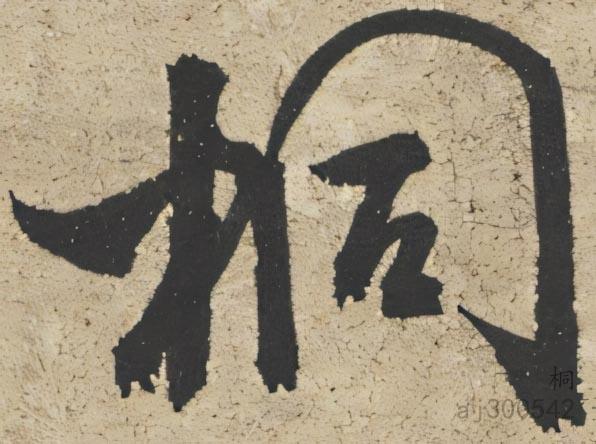 桐
桐
a j300542